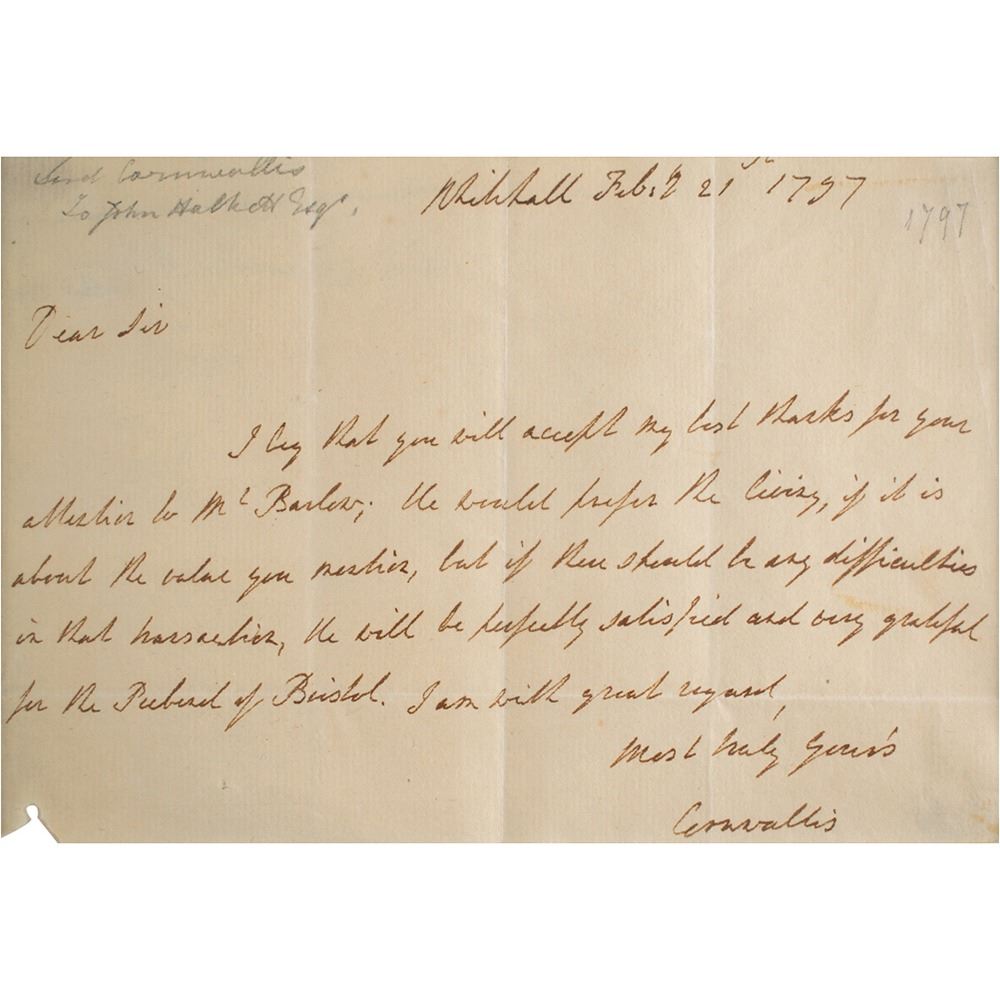 Lord Cornwallis
To John Halkett Esqr.
Whitehall Feb:y 21st 1797
1797
Dear Sir
I beg that you will accept my best thanks for your
attention to Mr Barlow; He would prefer the living, if it is
about the value you mention, but if there should be any difficulties
in that transaction, He will be perfectly satisfied and very grateful
for the Prebend of Bristol. I am with great regard,
Most truly Your's
Cornwallis